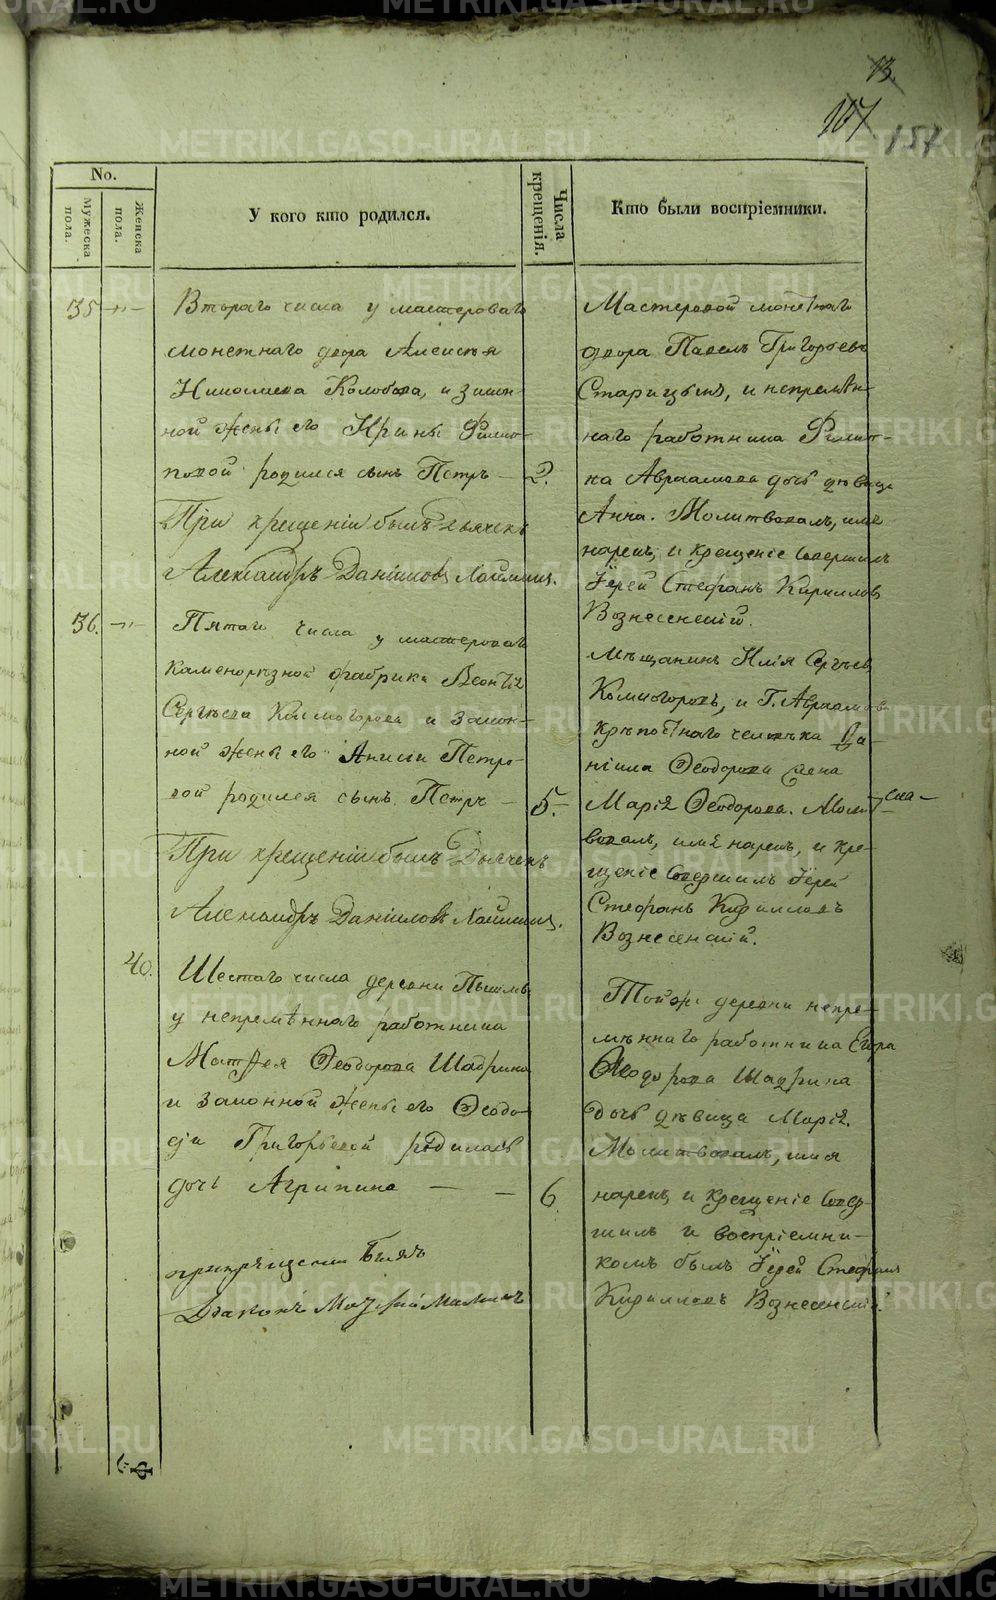 13.
107
157
No.
Мужеска пола.
Женска пола.
У кого кто родился.
Числа крещенія.
Кто были воспріемники.
35 -"-
Втораго числа у мастероваго
монетнаго двора Алексѣя
Николаева Колобова, и закон-
ной жены его Ирины Филип-
повой родился сынъ Петръ — 2.
При крещеніи былъ дьячекъ
Александръ Даніиловъ
Мастеровой монетнаго
двора Павелъ Григорьевъ
Старицынъ, и непремѣн-
наго работника Филип-
ка Авраамова дочь дѣвица
Анна. Молитвовалъ, имя
нарекъ, и крещеніе совершилъ
Іерей Стефанъ Кирилловъ
Вознесенскій.
36. -"-
Пятаго числа у мастероваго
каменорѣзной фабрики Леонтія
Сергѣева Колмогорова и закон-
ной жены его Анисьи Петро-
вой родился сынъ Петръ — 5.
При крещеніи былъ Дьячекъ
Александръ Даніиловъ
Мѣщанинъ Илія Сергѣевъ
Колмогоровъ, и Г. Авраамова
крѣпостнаго человѣка Да-
ніила Ѳеодорова жена
Марія Ѳеодорова. Молит-
вовалъ, имя нарекъ, и кре-
щеніе совершилъ Іерей
Стефанъ Кирилловъ
Вознесенскій.
40.
Шестаго числа деревни Пышмы
у непремѣннаго работника
Матѳея Ѳеодорова Шадрина
и законной жены его Ѳеодо-
сіи Григорьевой родилась
дочь Агрипина — — 6
при крещеніи былъ
Діаконъ
Той же деревни непре-
мѣннаго работника Егора
Ѳеодорова Шадрина
дочь дѣвица Марія.
Молитвовалъ, имя
нарекъ, и крещеніе совер-
шилъ и воспріемни-
комъ былъ Іерей Стефанъ
Кирилловъ Вознесенскій.
METRIKI.GASO-URAL.RU